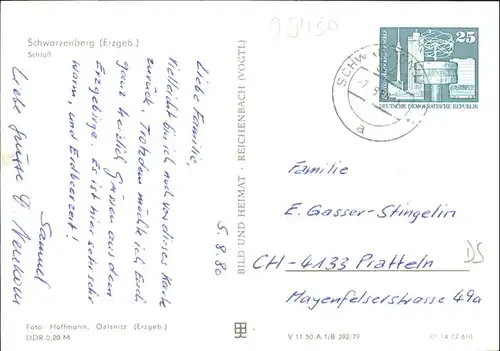 Schwarzenberg (Erzgeb.)
Schloß
Liebe Familie,
Vielleicht bin ich noch vor dieser Karte
zurück. Trotzdem möchte ich Euch
ganz herzlich Grüssen aus dem
Erzgebirge. Es ist hier sehr sehr
warm, und Erdbeerzeit!
Samuel
Liebe Grüsse
5.8.80
Foto: Hoffmann, Oelsnitz (Erzgeb.)
DDR 0,20 M
BILD UND HEIMAT · REICHENBACH (VOGTL)
09450
25
DEUTSCHE DEMOKRATISCHE REPUBLIK
SCHW
a
Familie
E. Gasser-Stingelin
CH-4133 Pratteln
Mayenfelserstrasse 49a
DS
V 11 50 A 1/B 392/79
01 14 17 610